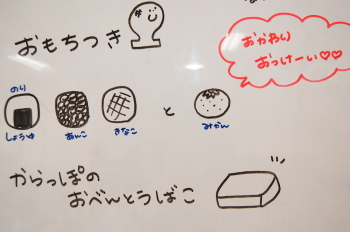 おもちつき
おかわり
おっけーい♡♡
のり
しょうゆ
あんこ
きなこ
と
みかん
からっぽの
おべんとうばこ